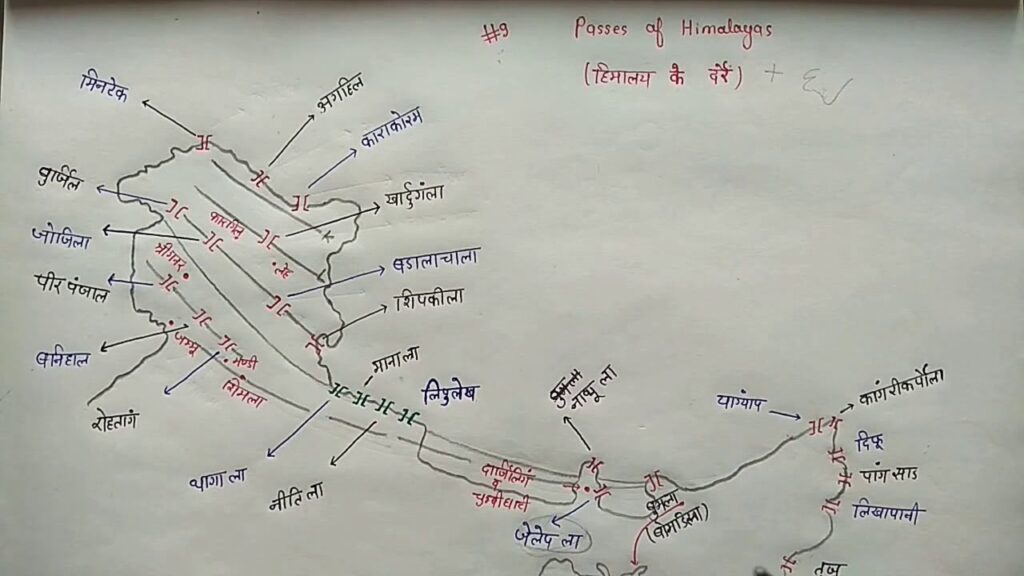 #9
Passes of Himalayas
(हिमालय के दर्रे) +
मिनटेक
अगहिल
काराकोरम
बुर्जिल
खार्दुगंला
कारगिल
जोजिला
श्रीनगर
लेह
बडालाचाला
पीर पंजाल
शिपकीला
बनिहाल
जम्मू
मण्डी
शिमला
मानाला
लिपुलेख
रोहतांग
थागा ला
नीति ला
नाथू ला
दार्जिलिंग
व
चुम्बीघाटी
जेलेप ला
बुमला
(बोमडिला)
याग्याप
कांगरीकर्पोला
दिफू
पांग साड
लिखापानी
तजू